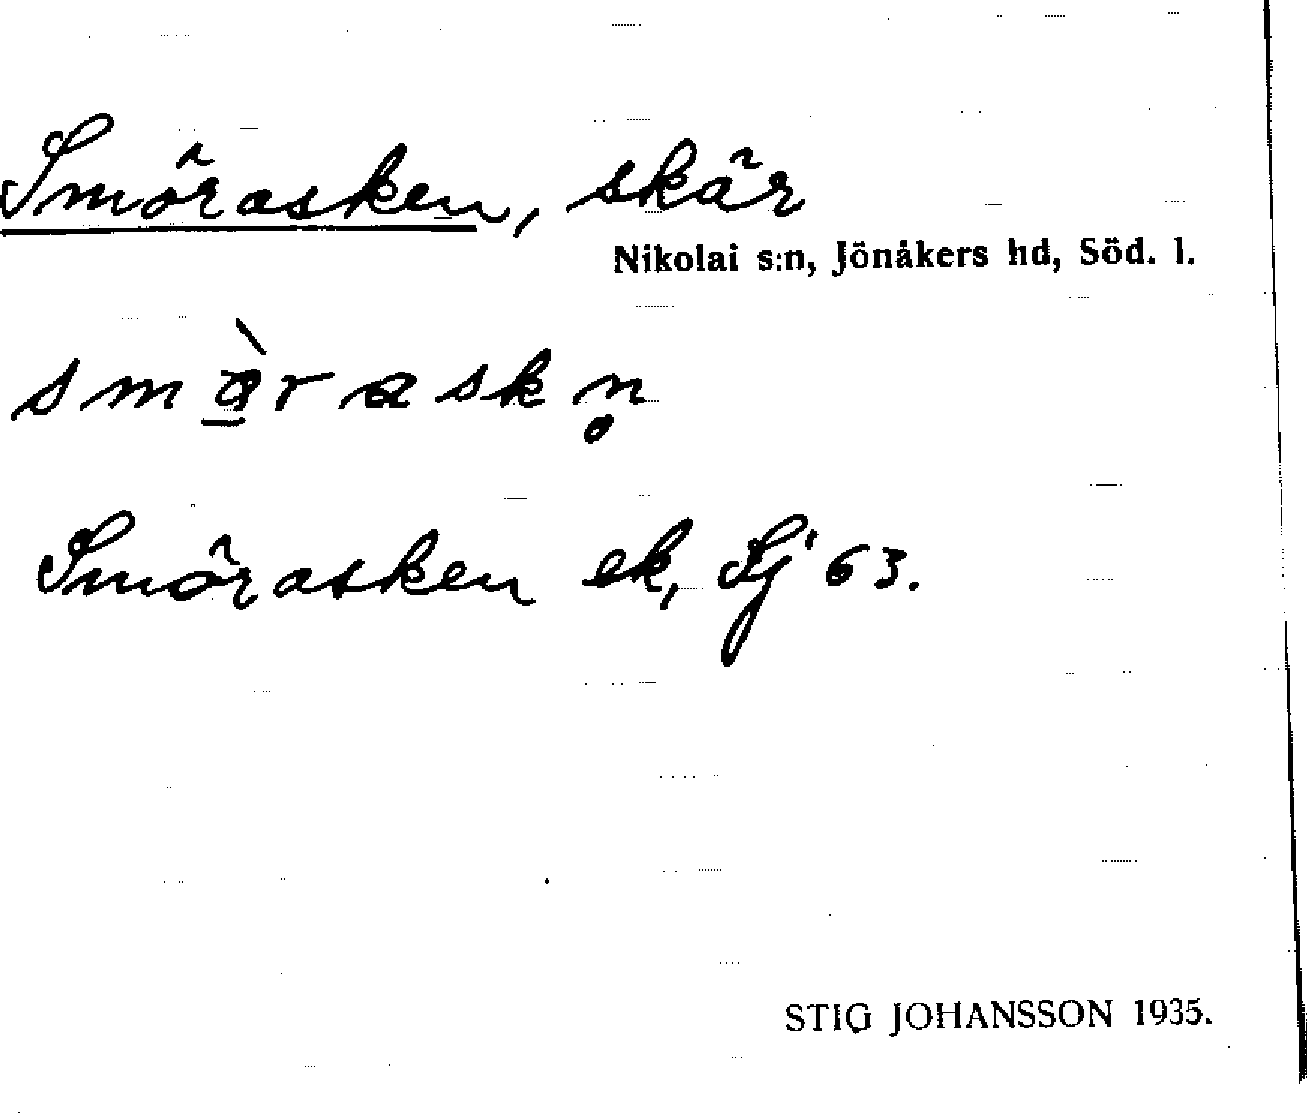 Smörasken, skär
Nikolai s:n, Jönåkers hd, Söd. l.
Smörasken ek, Sj 63.
STIG JOHANSSON 1935.